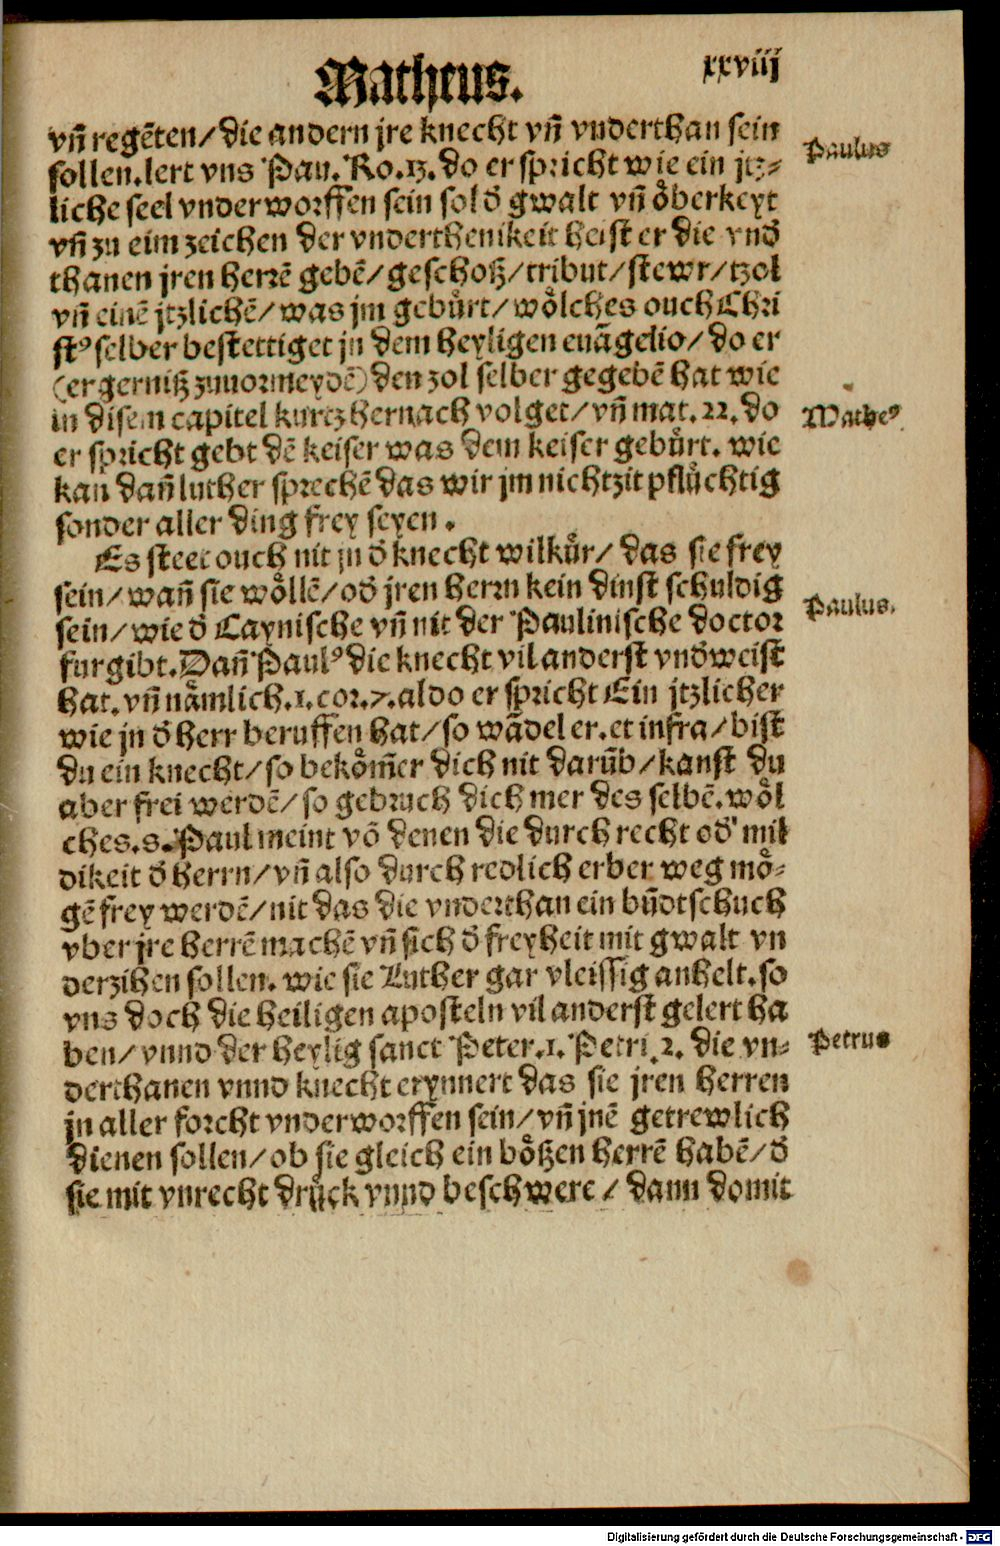 Matheus.
xxviij
vñ regẽten/die andern jre knecht vñ vnderthan sein
sollen.lert vns Pau. Ro.13.do er spricht wie ein jtz⸗
liche seel vnderworffen sein sol d̕ gwalt vñ oͤberkeyt
vñ zu eim zeichen der vnderthenikeit heist er die vnd̕
thanen jren herrẽ gebẽ/geschoß/tribut/stewr/tzol
vñ einẽ jtzlichẽ/was jm gebuͤrt/woͤlches ouch Chri
stꝰ selber bestettiget jn dem heyligen euãgelio/do er
(ergerniß zuuormeydẽ) den zol selber gegebẽ hat wie
in disem capitel kurtz hernach volget/vñ mat. 22. do
er spricht gebt dẽ keiser was dem keiser gebuͤrt. wie
kan dañ luther sprechẽ das wir jm nichtzit pfluͤchtig
sonder aller ding frey seyen.
Es steet ouch nit jn d̕ knecht wilkuͤr/das sie frey
sein/wañ sie woͤllẽ/od̕ jren herrn kein dinst schuldig
sein/wie d̕ Caynische vñ nit der Paulinische doctor
furgibt.Dañ Paulꝰ die knecht vil anderst vnd̕weist
hat.vñ naͤmlich.1.cor.7.aldo er spricht Ein jtzlicher
wie jn d̕ herr beruffen hat/so wãdel er.et infra/bist
du ein knecht/so bekoͤm̃er dich nit darũb/kanst du
aber frei werdẽ/so gebruch dich mer des selbẽ.woͤl
ches.s.Paul meint võ denen die durch recht od̕ mil
dikeit d̕ herrn/vñ also durch redlich erber weg moͤ⸗
gẽ frey werdẽ/nit das die vnderthan ein bũdtschuch
vber jre herrẽ machẽ vñ sich d̕ freyheit mit gwalt vn
derzihen sollen. wie sie Luther gar vleissig anhelt.so
vns doch die heiligen aposteln vil anderst gelert ha
ben/vnnd der heylig sanct Peter.1. Petri.2. die vn⸗
derthanen vnnd knecht erynnert das sie jren herren
jn aller forcht vnderworffen sein/vñ jnẽ getrewlich
dienen sollen/ob sie gleich ein boͤßen herrẽ habẽ/d̕
sie mit vnrecht druͤck vnnd beschwere/dann domit
Paulus
Matheꝰ
Paulus.
Petrus
Digitalisierung gefördert durch die Deutsche Forschungsgemeinschaft - DFG